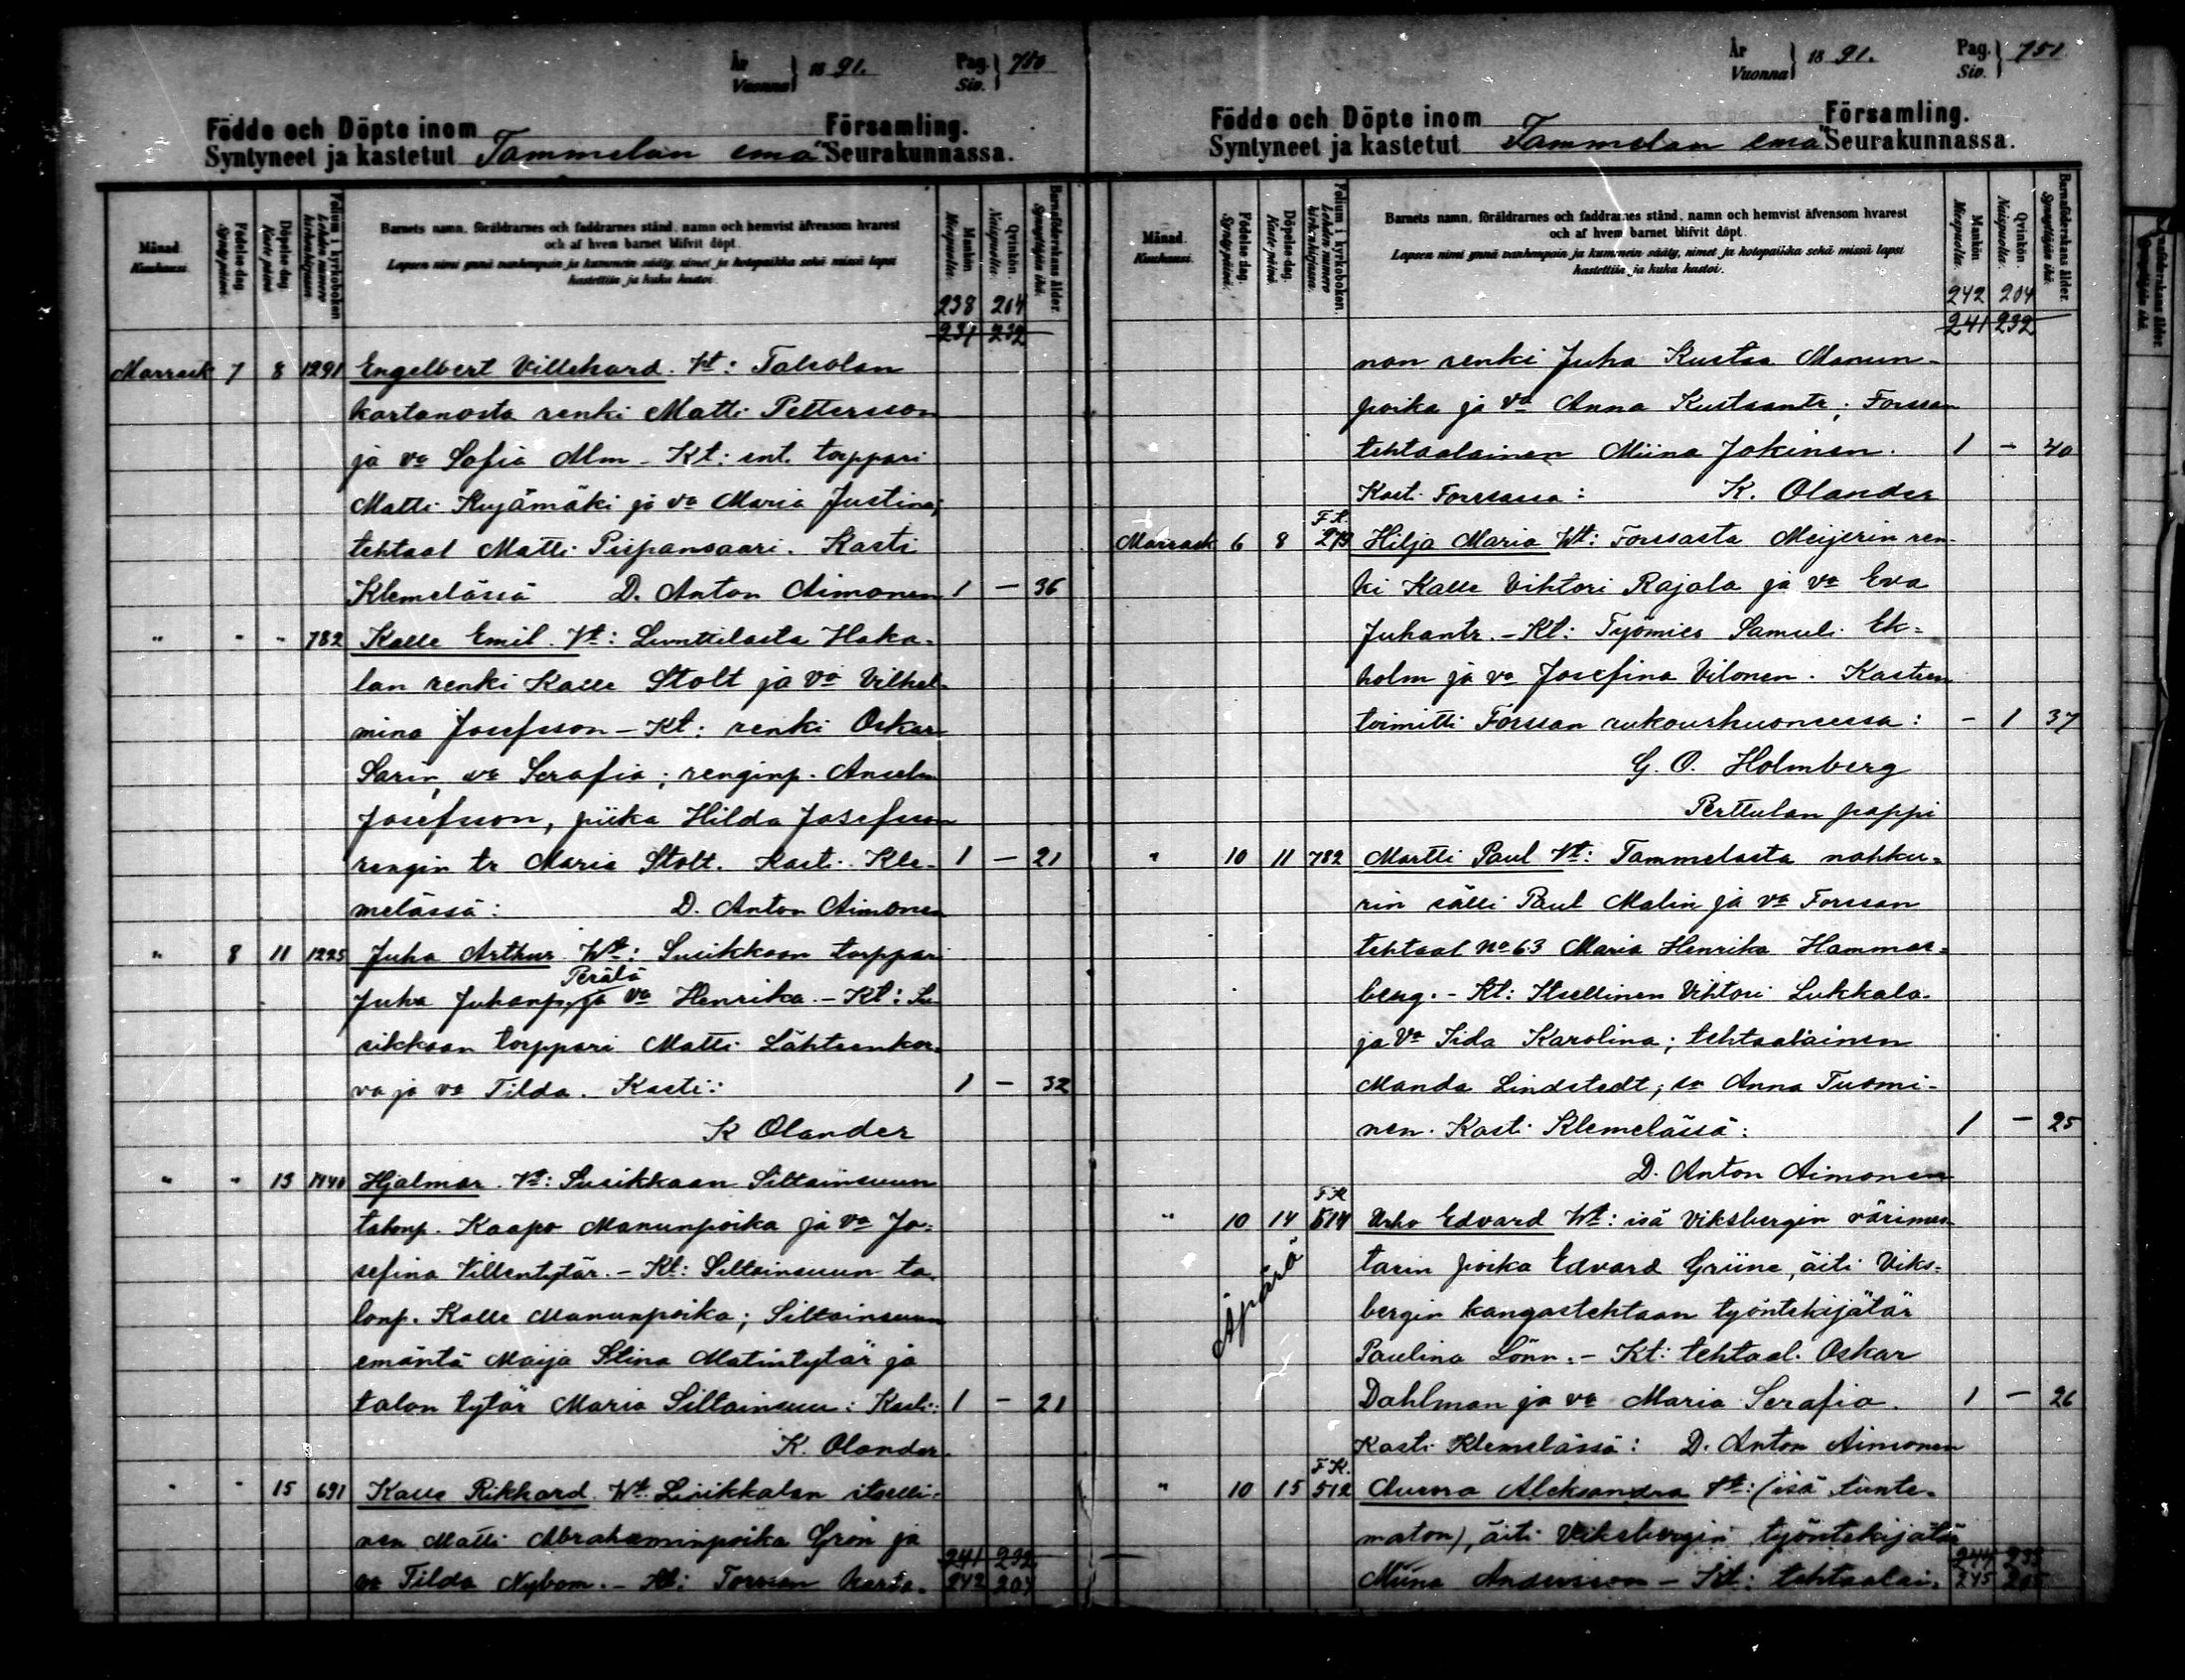 År Vuonna } 1891. Pag. Siv. } 750
Födde och Döpte inom Församling.
Syntyneet ja kastetut Tammelan emä Seurakunnassa.
Månad. Kuukausi. Födelse dag. Syntypäivä. Döpelse-dag. Kaste päivä. Folium i kyrkoboken. Lehden numero kirkonkirjassa.
Barnets namn, föräldrarnes och faddrarnes stånd, namn och hemvist äfvensom hvarest
och af hvem barnet blifvit döpt.
Lapsen nimi ynnä vanhempain ja kummein sääty, nimet ja kotopaikka sekä missä lapsi
kastettiin ja kuka kastoi.
Mankön. Miespuolta. Qvinkön. Naispuolta. Barnaföderskans ålder. Synnyttäjän ikä.
238 204
237 232
Marrask 7 8 1291 Engelbert Villehard. Vt: Talsolan
kartanosta renki Matti Pettersson
ja vo Sofia Alm - Kt: ent. torppari
Matti Kujämäki ja vo Maria Justina;
tehtaal Matti Piispansaari. Kasti
Klemelässä D. Anton Aimonen 1 - 36
" " " 782 Kalle Emil. Vt: Haka-
lan renki Kalle Stolt ja vo Vilhel-
mina Josefsson - Kt: renki Oskar
Sarin, vo Serafia; renginp. Anselm
Josefsson, piika Hilda Josefsson
rengin tr Maria Stolt. Kasti Kle- 1 - 21
melässä: D. Anton Aimonen
" 8 11 1225 Juha Arthur Wt: Susikkaan torppari
Perälä
Juha Juhanp. ja vo Henrika. - Kt: Su
sikkaan torppari Matti Lähteenkor-
va ja vo Tilda. Kasti: 1 - 32
K Olander
" " 13 Hjalmar. Vt: Susikkaan Siltainsuun
talonp. Kaapo Manunpoika ja vo Jo-
sefina Villentytär. - Kt: Siltainsuun ta-
lonp. Kalle Manunpoika; Siltainsuun
emäntä Maija Stina Matintytär ja
talon tytär Maria Siltainsuu: Kasti: 1 - 21
K. Olander.
" " 15 691 Kalle Rikhard Wt. Liisikkalan itselli-
nen Matti Abrahaminpoika Grön ja
241 232
vo Tilda Nybom. - Kt: Forssan 242 204
År Vuonna } 1891. Pag. Siv. } 751
Födde och Döpte inom Församling.
Syntyneet ja kastetut Tammelan emä Seurakunnassa.
Månad. Kuukausi. Födelse dag. Syntypäivä. Döpelse-dag. Kaste päivä. Folium i kyrkoboken. Lehden numero kirkonkirjassa.
Barnets namn, föräldrarnes och faddrarnes stånd, namn och hemvist äfvensom hvarest
och af hvem barnet blifvit döpt.
Lapsen nimi ynnä vanhempain ja kummein sääty, nimet ja kotopaikka sekä missä lapsi
kastettiin ja kuka kastoi.
Mankön. Miespuolta. Qvinkön. Naispuolta. Barnaföderskans ålder. Synnyttäjän ikä.
242 204
241 232
non renki Juha Kustaa Manun-
poika ja vo Anna Kustaantr; Forssan
tehtaalainen Miina Jokinen. 1 - 40
Kast. Forssassa: K. Olander
F.K.
Marrask 6 8 273 Hilja Maria Wt: Forssasta Meijerin ren-
ki Kalle Vihtori Rajala ja vo Eva
Juhantr. - Kt: Työmies Samuli Ek-
holm ja vo Josefina Vilonen. Kasteen
toimitti Forssan rukoushuoneessa: - 1 37
G. O. Holmberg
Perttulan pappi
" 10 11 782 Martti Paul Vt: Tammelasta nahku-
rin sälli Paul Malin ja vo Forssan
tehtaal No 63 Maria Henrika Hammar-
berg. - Kt: Itsellinen Vihtori Lukkala
ja vo Iida Karolina; tehtaalainen
Manda Lindstedt; Anna Tuomi-
nen. Kasti Klemelässä: 1 - 25
D. Anton Aimonen
F K
" 10 14 514 Urho Edvard Wt: isä Viksbergin värimes-
tarin poika Edvard Grüne, äiti Viks-
bergin kangastehtaan työntekijätär
Paulina Lönn. - Kt: tehtaal. Oskar
Dahlman ja vo Maria Serafia. 1 - 26
Kasti Klemelässä: D. Anton Aimonen
Äpärä
F.K.
" 10 15 512 Aurora Aleksandra Vt: (isä tunte-
maton), äiti Viksbergin työntekijätär
244 233
Miina Andersson - Kt: tehtaalai- 245 205